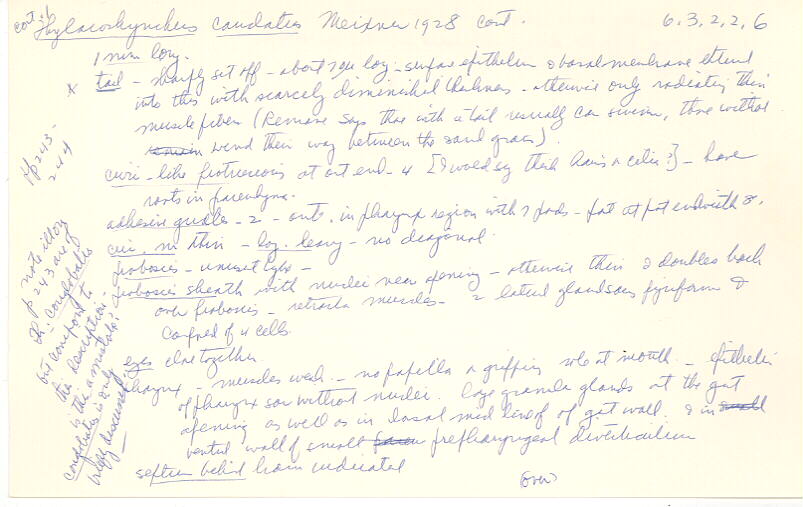 cont. 1
Thylacorhynchus caudatus Meixner 1928 cont. 6.3.2.2.6
1 mm long.
x tail - sharply set off - about 70µ long - surface epithelium & basal membrane extend
into this with scarcely diminished thickness - otherwise only radiating thin
muscle fibers (Remane says those with a tail usually can swim, those without
wend their way between the sand grains)
cirri-like protrusions at ant end - 4 [I would say thick hairs or cilia?] - have
roots in parenchyma.
adhesive girdles - 2 - ant. in pharynx region with 7 pads - post at post end with 8.
cir. m thin - long. heavy - no diagonal
proboscis - unused type -
proboscis sheath with nuclei near opening - otherwise thin & doubles back
over proboscis - retractor muscles - 2 lateral glandsacs pyriform &
composed of 4 cells.
eyes close together.
pharynx - muscles weak - no papilla or gripping sole at mouth - epithelium
of pharynx sac without nuclei. large granule glands at the gut
opening as well as in dorsal med line of gut wall. & in
ventral wall of small prepharyngeal diverticulum
septum behind brain indicated
(over)
pp 243-
244
note illus
p 243 are of
Th. conglobatus
but compared to
the description
is this a mistake?
conglobatus is only
briefly discussed.